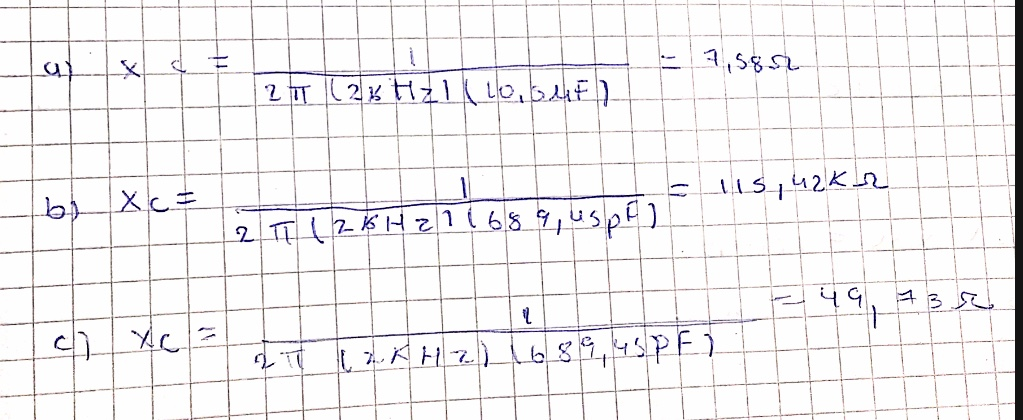 a) Xc = 1 / 2π (2KHz) (10,5μF) = 7,58Ω
b) Xc = 1 / 2π (2KHz) (689,45pF) = 115,42KΩ
c) Xc = 1 / 2π (2KHz) (689,45pF) = 49,73Ω